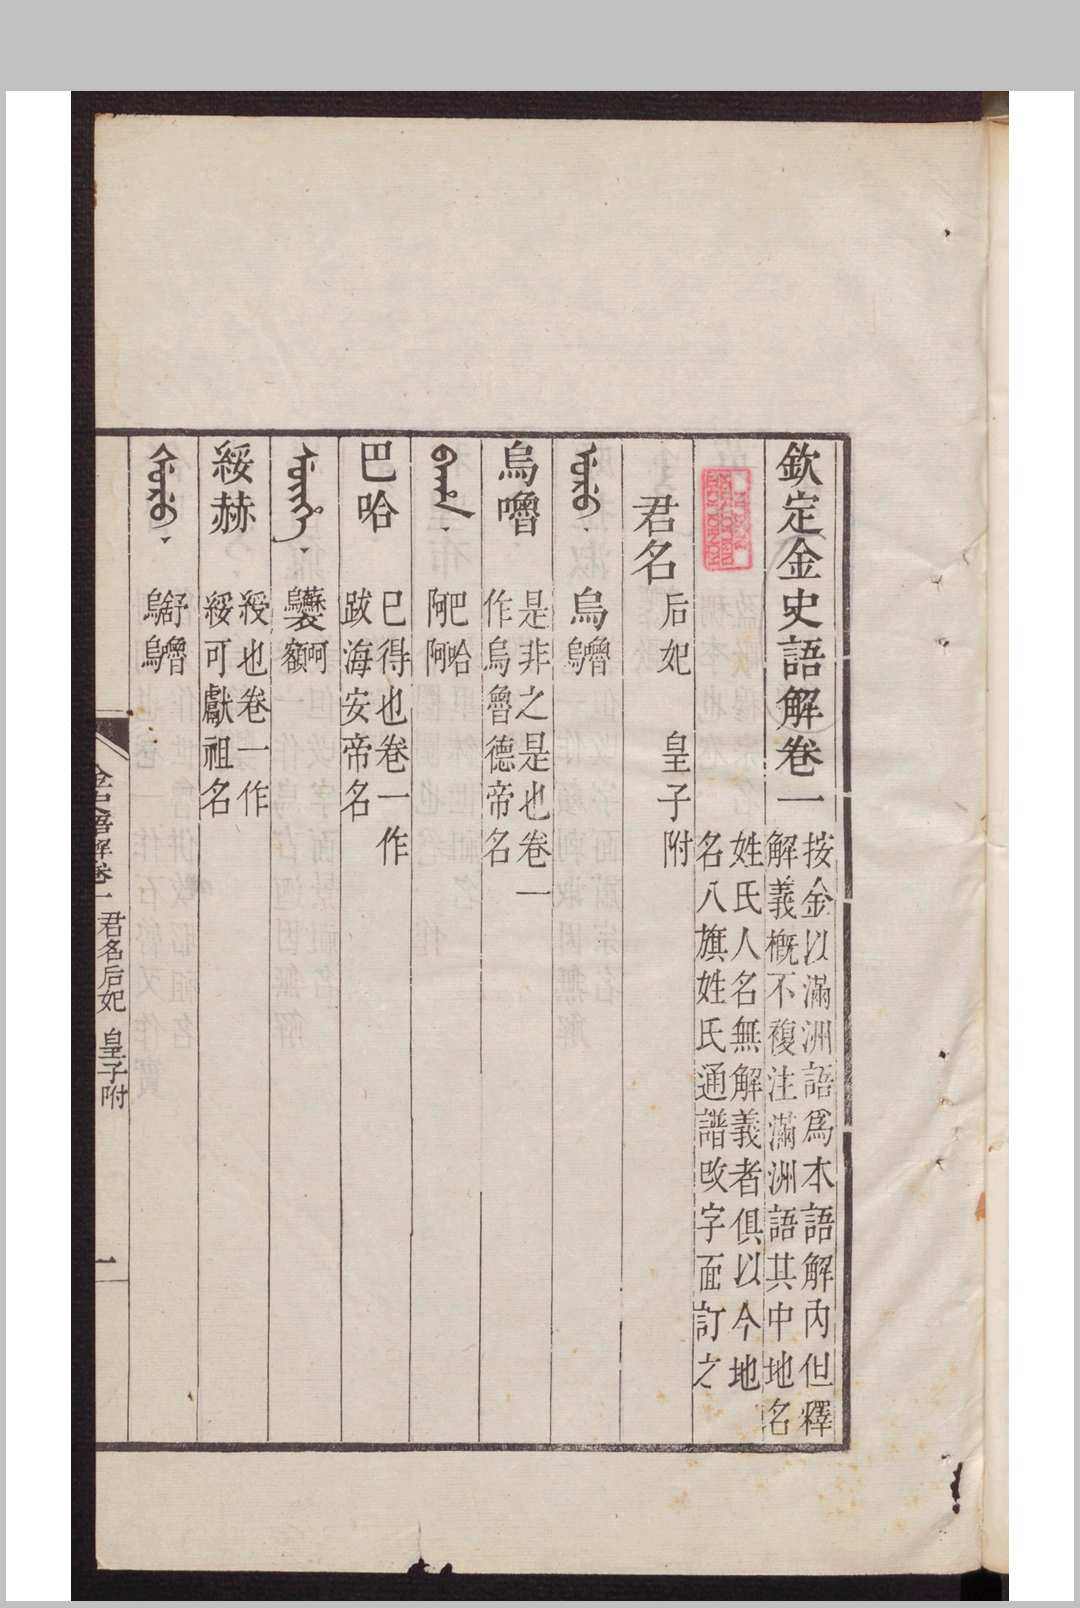 欽定金史語解卷一
按金以滿洲語爲本語解內但釋
解義概不複注滿洲語其中地名
姓氏人名無解義者俱以今地
名八旗姓氏通譜改字面訂之
君名 后妃 皇子附
ᡠᡵᡠ 烏 嚕烏
烏嚕 是非之是也卷一
作烏魯德帝名
ᠪᠠᡥᠠ 巴哈
阿阿
巴哈 已得也卷一作
跋海安帝名
ᠰᡠᡳᡥᡝ 呵額
綏赫 綬也卷一作
綏可獻祖名
ᡧᡠᡵᡠ 舒嚕
烏烏
金史語解卷一 君名后妃 皇子附 一